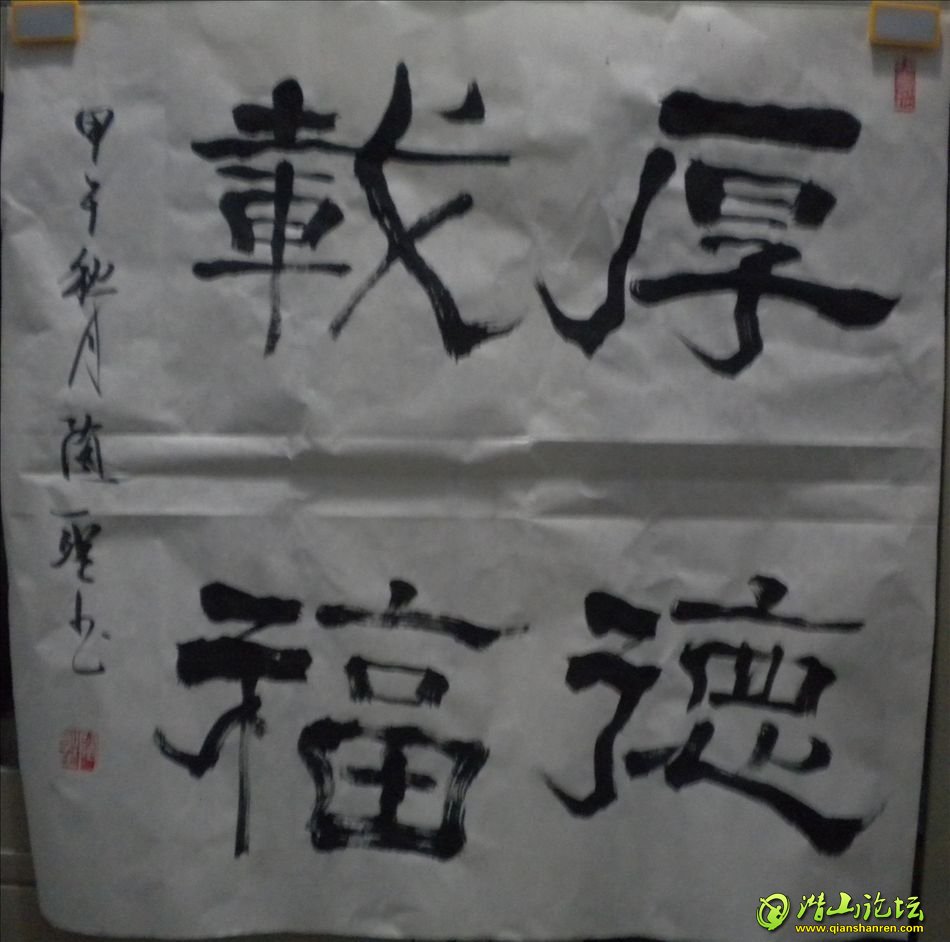 厚德
載福
甲午秋月
潜山论坛
www.qianshanren.com